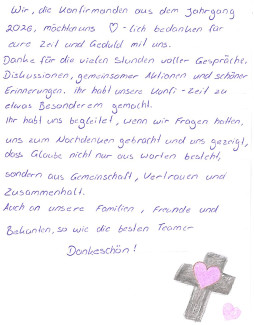 Wir, die Konfirmanden aus dem Jahrgang
2026, möchten uns ♡-lich bedanken für
eure Zeit und Geduld mit uns.
Danke für die vielen stunden voller Gespräche,
Diskussionen, gemeinsamer Aktionen und schöner
Erinnerungen. ihr habt unsere Konfi-Zeit zu
etwas Besonderem gemacht.
Ihr habt uns begleitet, wenn wir Fragen hatten,
uns zum Nachdenken gebracht und uns gezeigt,
dass Glaube nicht nur aus worten besteht,
sondern aus Gemeinschaft, Vertrauen und
Zusammenhalt.
Auch an unsere Familien, Freunde und
Bekannten, so wie die besten Teamer
Dankeschön!